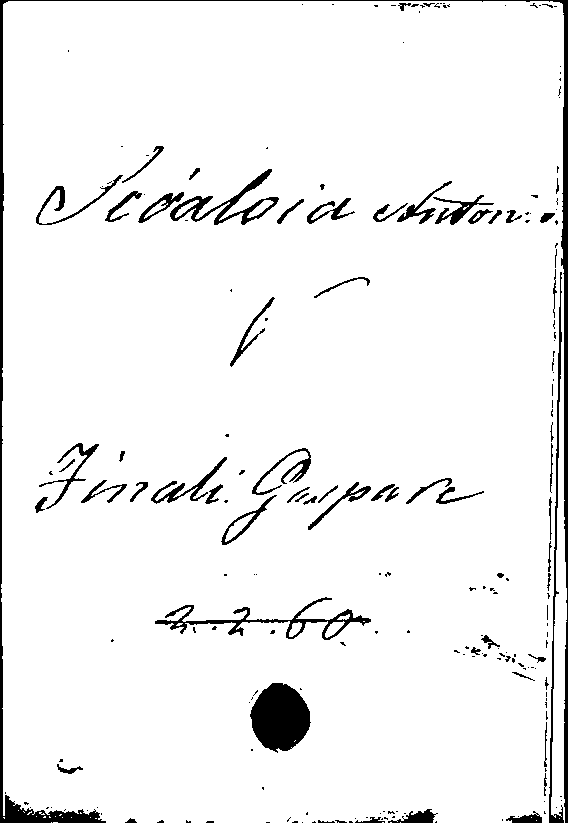 Scialoia Antonio
V
Finali Gaspare
2.2.60.